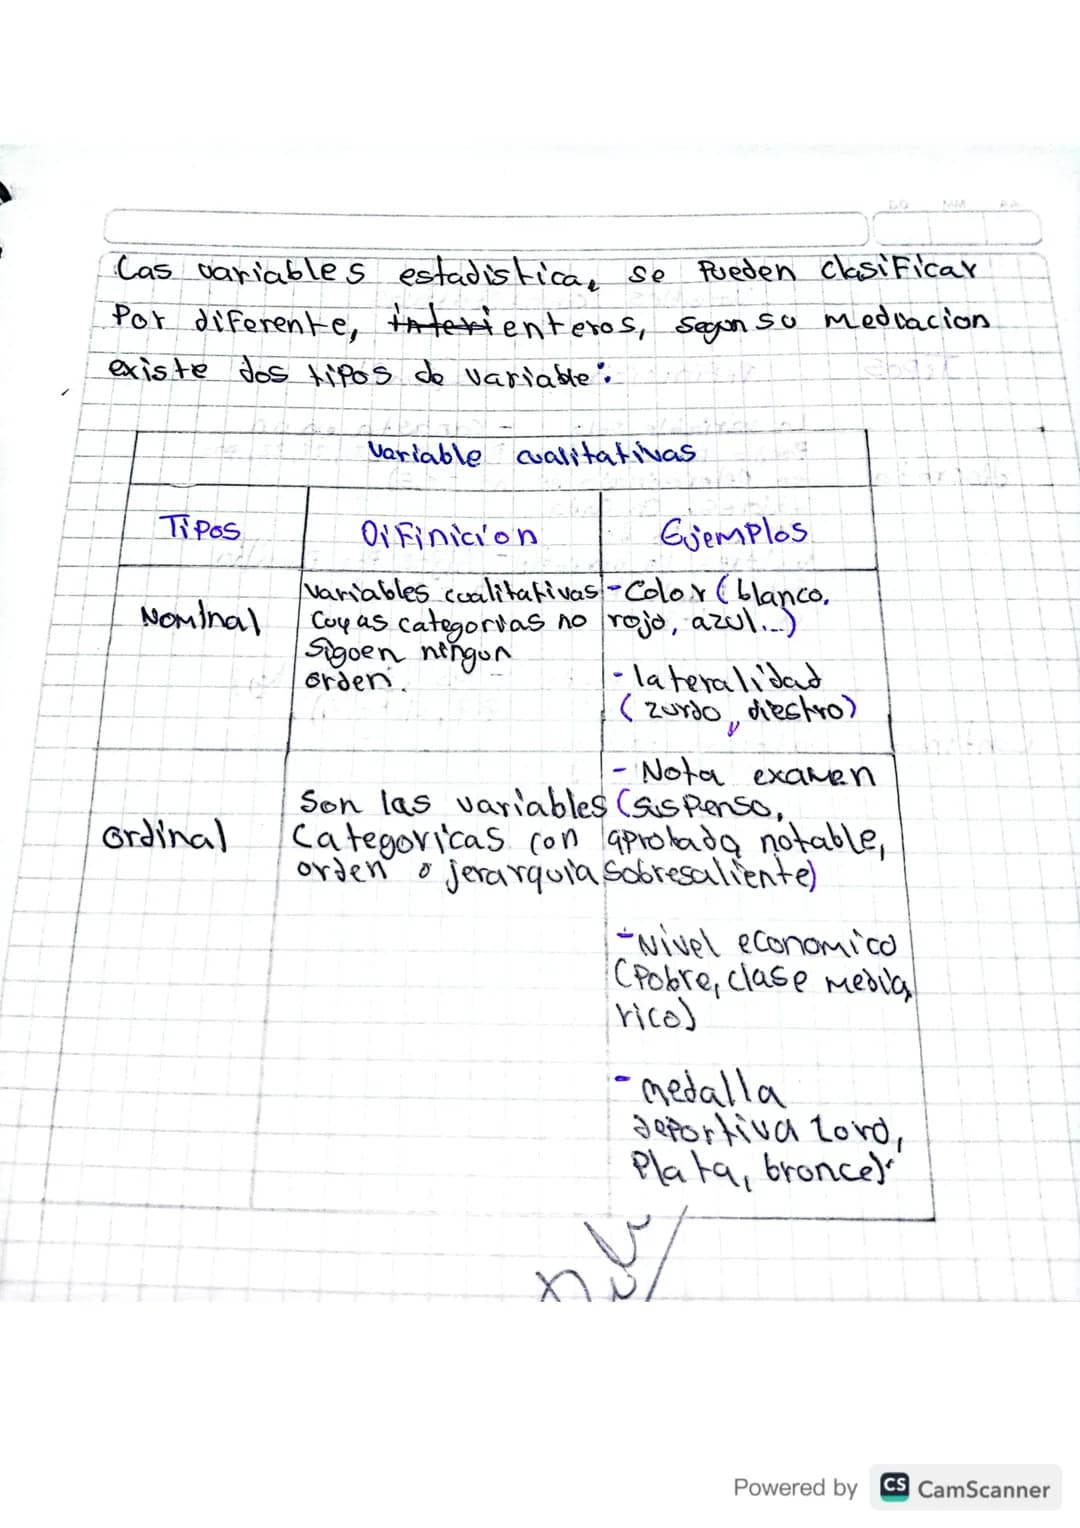 DD MM AA
Las variables estadistica, se Pueden clasificar
Por diferente, interienteros, segun su mediacion
existe dos tipos de variable:
Variable cualitativas
Tipos Difinicion Ejemplos
Nominal
variables cualitativas
Cuyas categorias no
Siguen ningun
orden.
- Color (blanco,
rojo, azul...)
- lateralidad
(zurdo, diestro)
Ordinal
Son las variables
Categoricas con
orden o jerarquia
- Nota examen
(suspenso,
aprobado, notable,
Sobresaliente)
- Nivel economico
(Pobre, clase media,
rico)
- medalla
deportiva (oro,
Plata, bronce)
Powered by CS CamScanner